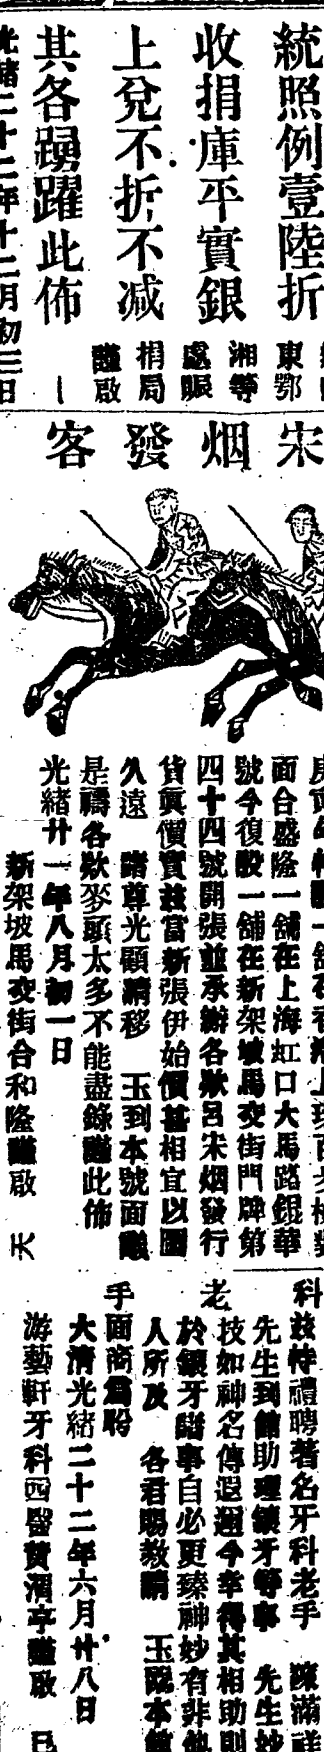 統照例壹陸折
收捐庫平實銀
上兌不折不減
其各踴躍此佈
東鄂
湘等
處賑
捐局
謹啟
光緒二十二年十二月初三日
宋烟發客
面合盛隆一舖在上海虹口大馬路銀華
號今復設一舖在新架坡馬交街門牌第
四十四號開張並承辦各欵呂宋烟發行
貨眞價實茲當新張伊始價甚相宜以圖
久遠 諸尊光顧請移 玉到本號面議
是禱各欵麥頭太多不能盡錄謹此佈
光緒廿一年八月初一日
新架坡馬交街合和隆謹啟 天
科茲特禮聘著名牙科老手 陳滿祥
先生到館助理鑲牙等事 先生妙
老技如神名傳遐邇今幸得其相助則
於鑲牙諸事自必更臻神妙有非他
人所及 各君賜教請 玉臨本館
手面商爲盼
大清光緒二十二年六月廿八日
游藝軒牙科西醫黃渭亭謹啟 已